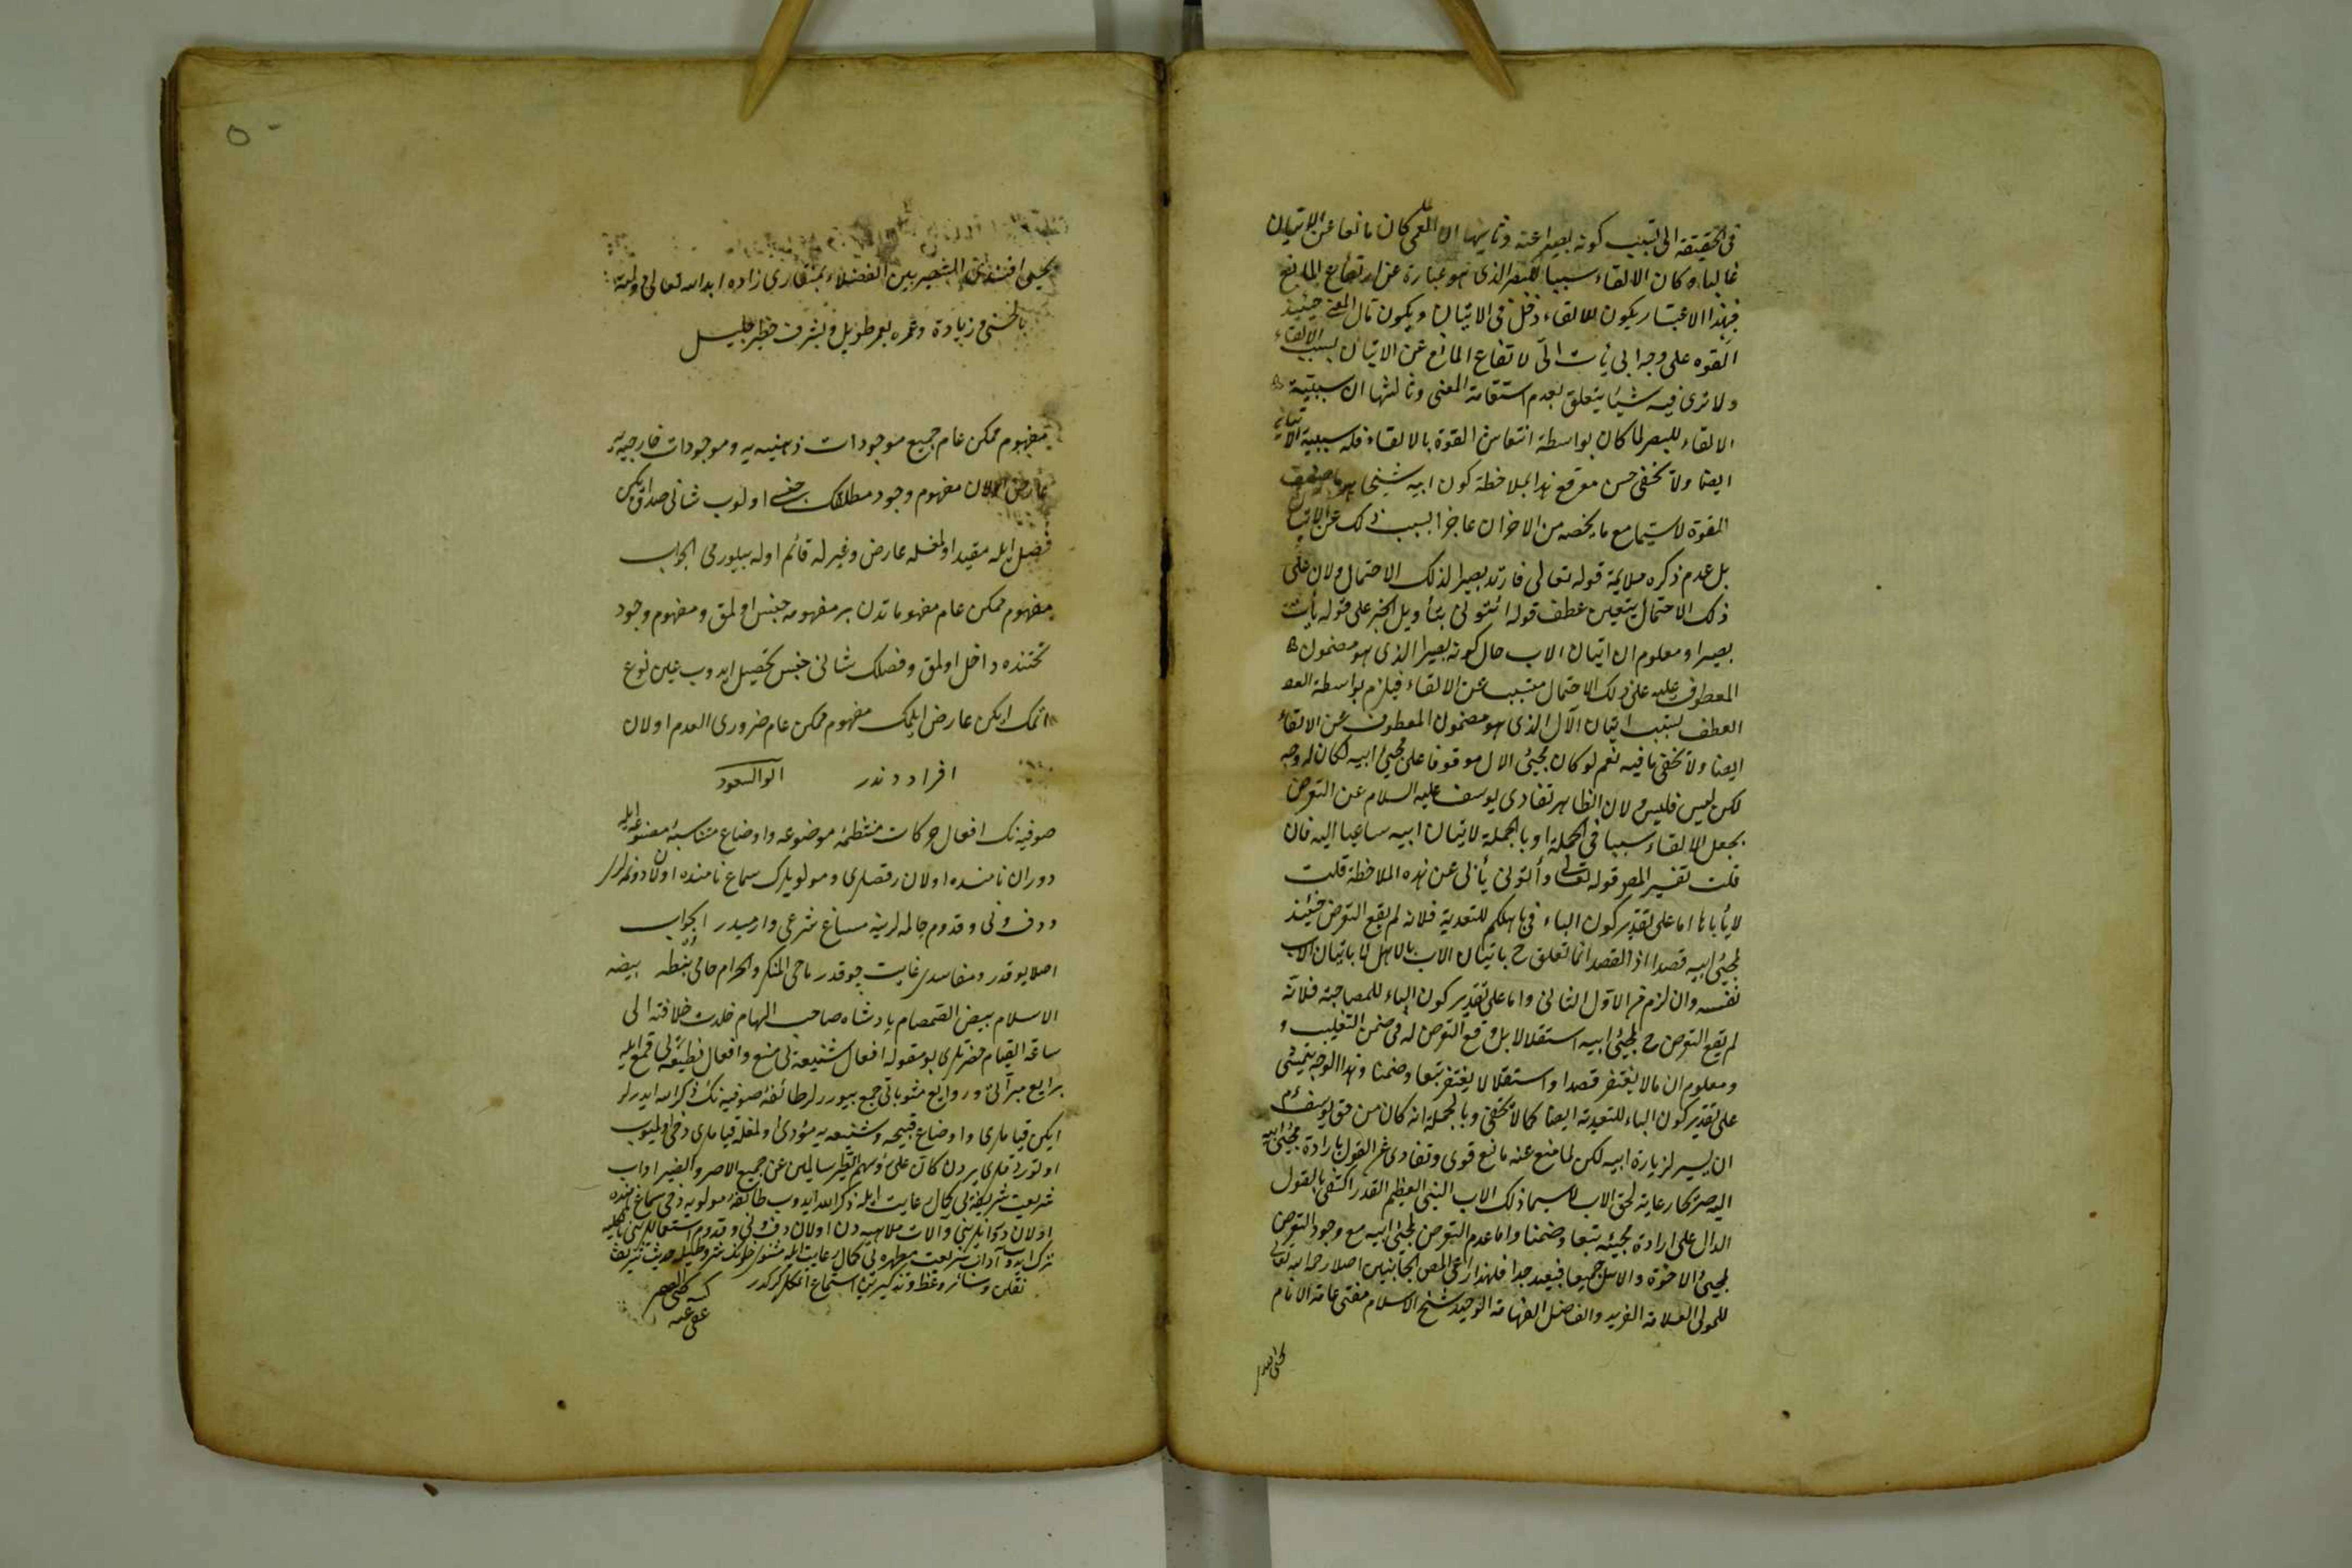 فى الحقيقة الى تسبب كونه بصيرا عنه وثانيها ان العمى كان مانعا عن الاتيان
غالبا وكان الالقاء سببا للبصر الذى هو عبارة عن ارتفاع المانع
فبهذا الاعتبار يكون للالقاء دخل فى الاتيان ويكون مآل المعنى حينئذ
القوه على وجه ابى يأت الى لارتفاع المانع عن الاتيان بسبب الالقاء
ولا نرى فيه شيئا يتعلق بعدم استقامة المعنى وثالثها ان سببية
الالقاء للبصر لما كان بواسطة انتعاش القوة بالالقاء فله سببية
ايضا ولا يخفى حسن موقع هذا بملاحظة كون ابيه شيخا
القوة لا سيما مع ما يخصه من الاحزان عاجزا بسبب ذلك عن الاتيان
بل عدم ذكره ملايمة قوله تعالى فارتد بصيرا لذلك الاحتمال ولان على
ذلك الاحتمال يتعين عطف قوله ائتونى بتأويل الخبر على قوله يأت
بصيرا ومعلوم ان اتيان الاب حال كونه بصيرا الذى هو مضمون
المعطوف عليه على ذلك الاحتمال متسبب عن الالقاء فيلزم بواسطة
العطف تسبب اتيان الآل الذى هو مضمون المعطوف عن الالقاء
ايضا ولا يخفى ما فيه نعم لو كان مجيئ الال موقوفا على مجيئ ابيه لكان له وجه
لكن ليس فليس ولان الظاهر تفادى يوسف عليه السلام عن التعرض
بجعل الالقاء سببا فى الجملة او بالجملة لاتيان ابيه ساعيا اليه فان
قلت تفسير المص قوله تعالى وأتونى يأبى عن هذه الملاحظة قلت
لا يأباها اما على تقدير كون الباء فى باهلكم للتعدية فلانه لم يقع التعرض حينئذ
لمجيئ ابيه قصدا اذ القصد انما تعلق ح باتيان الاب بالاهل لا باتيان الاب
نفسه وان لزم من الاول الثانى واما على تقدير كون الباء للمصاحبة فلانه
لم يقع التعرض ح لمجيئ ابيه استقلالا بل وقع التعرض له فى ضمن التغليب و
ومعلوم ان ما لا يغتفر قصدا واستقلالا يغتفر تبعا وضمنا وهذا الوجه يتمشى
على تقدير كون الباء للتعدية ايضا كما لا يخفى وبالجملة انه كان من حق يوسف ءم
ان يسير لزيارة ابيه لكن لما منع عنه مانع قوى وتفادى عن القول بارادة مجيئ ابيه
اليه صريحا رعاية لحق الاب لا سيما ذلك الاب النبى العظيم القدر اكتفى بالقول
الدال على ارادة مجيئه تبعا وضمنا واما عدم التعرض لمجيئ ابيه مع وجود التعرض
لمجيئ الاخوة والاهل جميعا فبعيد جدا فلهذا راعى المص الجانبين اصلا رحمه الله تعالى
للمولى العلامة الفريد والفاضل الفهامة الوحيد شيخ الاسلام مفتى عامة الانام
يحيى افندى الشهير بين الفضلاء بمنقارى زاده ابده الله تعالى
بالحسنى وزيادة وعمره بعمر طويل وبشرف خطير جليل
مفهوم ممكن عام جميع موجودات ذهنيه يه وموجودات خارجيه يه
عارض اولان مفهوم وجود مطلقك جنسى اولوب شانى صدق ايكن
فصل ايله مقيد اولمغله عارض وغيرله قائم اوله بيلورمى الجواب
مفهوم ممكن عام مفهوماتدن بر مفهومه جنس اولمق ومفهوم وجود
تحتنده داخل اولمق وفصلك شانى جنس تحصيل ايدوب عين نوع
اتمك ايكن عارض ايلمك مفهوم ممكن عام ضرورى العدم اولان
افراددندر ابو السعود
صوفيه نك افعال حركات منتظمه موضوعه واوضاع متناسبه مصنوعه ايله
دوران نامنده اولان رقصلرى ومولويلرك سماع نامنده اولان دونمه لرى
ودف ونى وقدوم چالمه لرينه مساغ شرعى وارميدر الجواب
اصلا يوقدر ومفاسدى غايت چوقدر ماحى المنكر والحرام حامى بيضه
الاسلام ببيض الصمصام پادشاه صاحب الهام خلدت خلافته الى
ساعة القيام حضرتلرى بو مقوله افعال شنيعه يى منع وافعال فظيعه يى قمع ايله
ايكن قياملرى واوضاع قبيحه وشنيعه يه مؤدى اولمغله قياملرى دخى اولميوب
اوتوردقلرى يردن كان على رؤسهم الطير سالمين عن جميع الاصر والضير اداب
شريعت شريفه يى كمال رعايت ايله ذكر الله ايدوب طائفه مولويه دخى سماع نامنده
اولان دونمه لرينى والات ملاهيه دن اولان دف ونى وقدوم استعماللرينى بالكليه
ترك ايدوب آداب شريعت مطهره يى كمال رعايت ايله مثنوى خوانك حديث شريف
نقلن وسائر وعظ وتذكيرين استماع اتمكلرى كركدر
كتبه
عفى عنه